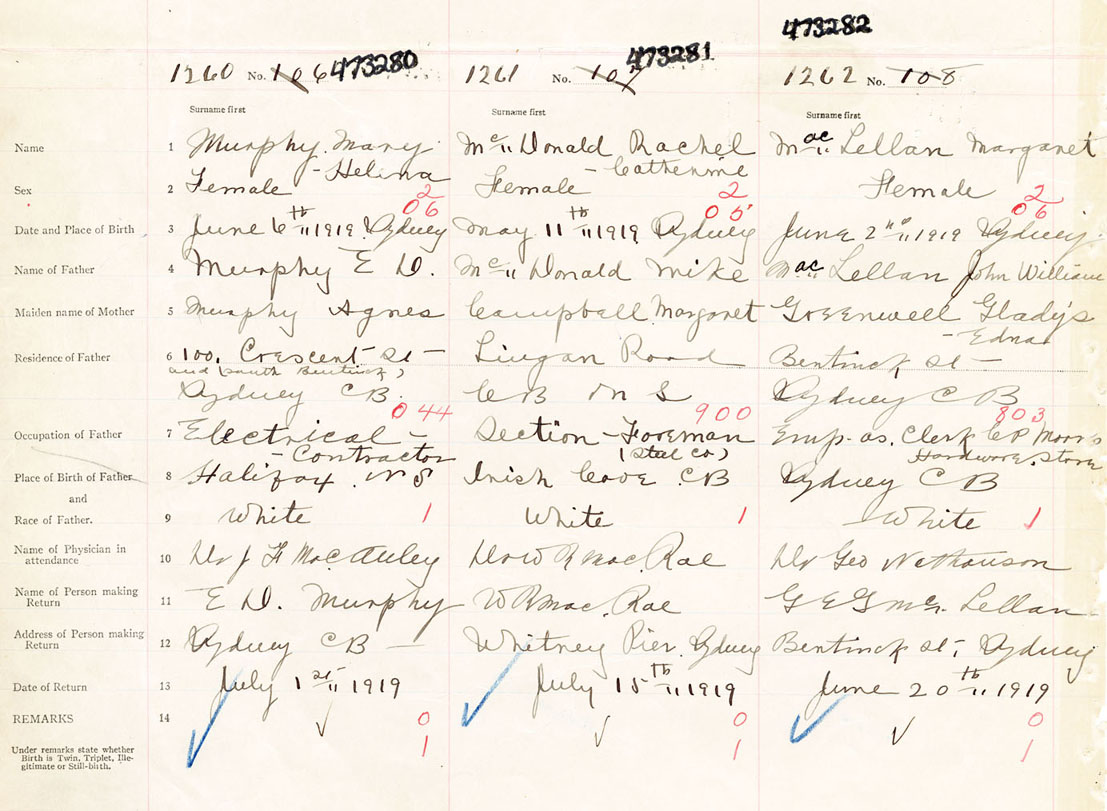 473282
473280 473281
1260 No. 106 1261 No. 107 1262 No. 108
Surname first Surname first Surname first
Name 1 Murphy. Mary Mc Donald Rachel Mac Lellan Margaret
- Helina - Catherine
Sex 2 Female Female Female
2 2 2
06 05 06
Date and Place of Birth 3 June 6th 1919 Sydney May 11th 1919 Sydney June 2nd 1919 Sydney
Name of Father 4 Murphy E D. Mc Donald Mike Mac Lellan John William
Maiden name of Mother 5 Murphy Agnes Campbell Margaret Greenwell Gladys
- Edna
Residence of Father 6 100, Crescent St - Lingan Road Bentinck St -
and South Bentinck)
Sydney CB. CB N S Sydney CB
044 900 803
Occupation of Father 7 Electrical - Section - Foreman Emp. as. Clerk CP Moore's
- Contractor (Steel Co) Hardware. Store
Place of Birth of Father 8 Halifax. N S Irish Cove. CB Sydney CB
and
Race of Father. 9 White 1 White 1 White 1
Name of Physician in
attendance 10 Dr J F MacAuley Dr W R Mac. Rae Dr Geo
Name of Person making
Return 11 E D. Murphy W R Mac. Rae Lellan
Address of Person making
Return 12 Sydney CB - Whitney Pier. Sydney Bentinck St, Sydney
Date of Return 13 July 1st 1919 July 15th 1919 June 20th 1919
REMARKS 14 0 0 0
Under remarks state whether
Birth is Twin, Triplet, Ille-
gitimate or Still-birth.
1 1 1